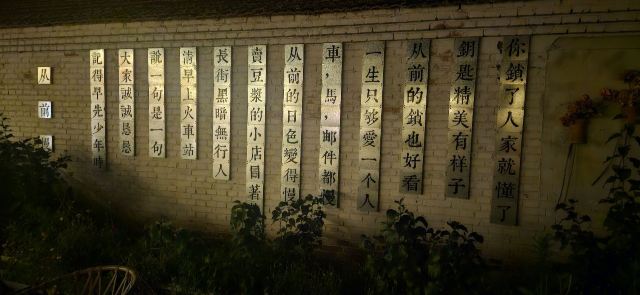 从前慢
記得早先少年時
大家誠誠懇懇
説一句是一句
清早上火車站
長街黑暗無行人
賣豆漿的小店冒著
从前的日色變得慢
車，馬，邮件都慢
一生只够愛一个人
从前的鎖也好看
鑰匙精美有样子
你鎖了人家就懂了